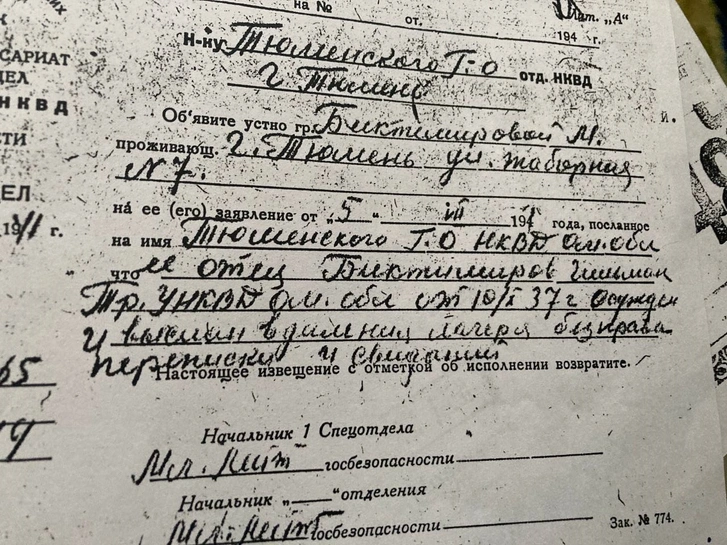 на № от. Лит. „А"
194 г.
САРИАТ
ДЕЛ
НКВД
СТИ
ДЕЛ
1941 г.
65
Н-ку Тюменского Г.О отд. НКВД
г. Тюмень
Объявите устно гр. Биктимировой М.
проживающ. г. Тюмень ул. Заборная
№ 7.
на ее (его) заявление от „5" III 1941 года, посланное
на имя Тюменского Г.О НКВД Ом. обл
что ее отец Биктимиров
Тр. УНКВД Ом. обл от 10/X 37 г осужден
и выслан в дальния лагеря без права
переписки и свиданий
Настоящее извещение с отметкой об исполнении возвратите.
Начальник 1 Спецотдела
Мл. Лейт госбезопасности
Начальник „ " отделения
Мл. Лейт госбезопасности
Зак. № 774.